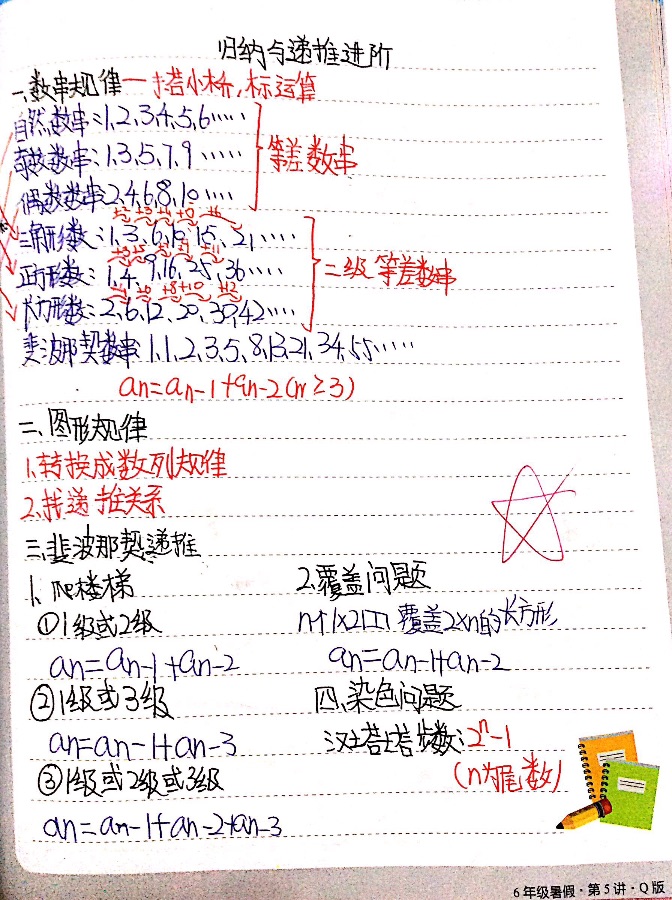 归纳与递推进阶
一、数串规律一搭小桥,标运算
自然数串:1,2,3,4,5,6·····
奇数数串:1,3,5,7,9·····
等差数串
偶数数串2,4,6,8,10····
+2 +3 +4 +5 +6
三角形数:1,3,6,10,15,21····
+3 +5 +7 +9 +11
正方形数:1,4,9,16,25,36····
二级等差数串
+4 +6 +8 +10 +12
长方形数:2,6,12,20,30,42····
斐波那契数串1,1,2,3,5,8,13,21,34,55·····
an=an-1+an-2(n≥3)
二、图形规律
1.转换成数列规律
2.找递推关系
三、斐波那契递推
1、爬楼梯
2.覆盖问题
①1级或2级
n个1×2 覆盖2×n的长方形
an=an-1+an-2
an=an-1+an-2
②1级或3级
四、染色问题
an=an-1+an-3
汉塔步数:2ⁿ-1
③1级或2级或3级
(n为尾数)
an=an-1+an-2+an-3
6年级暑假·第5讲·Q版